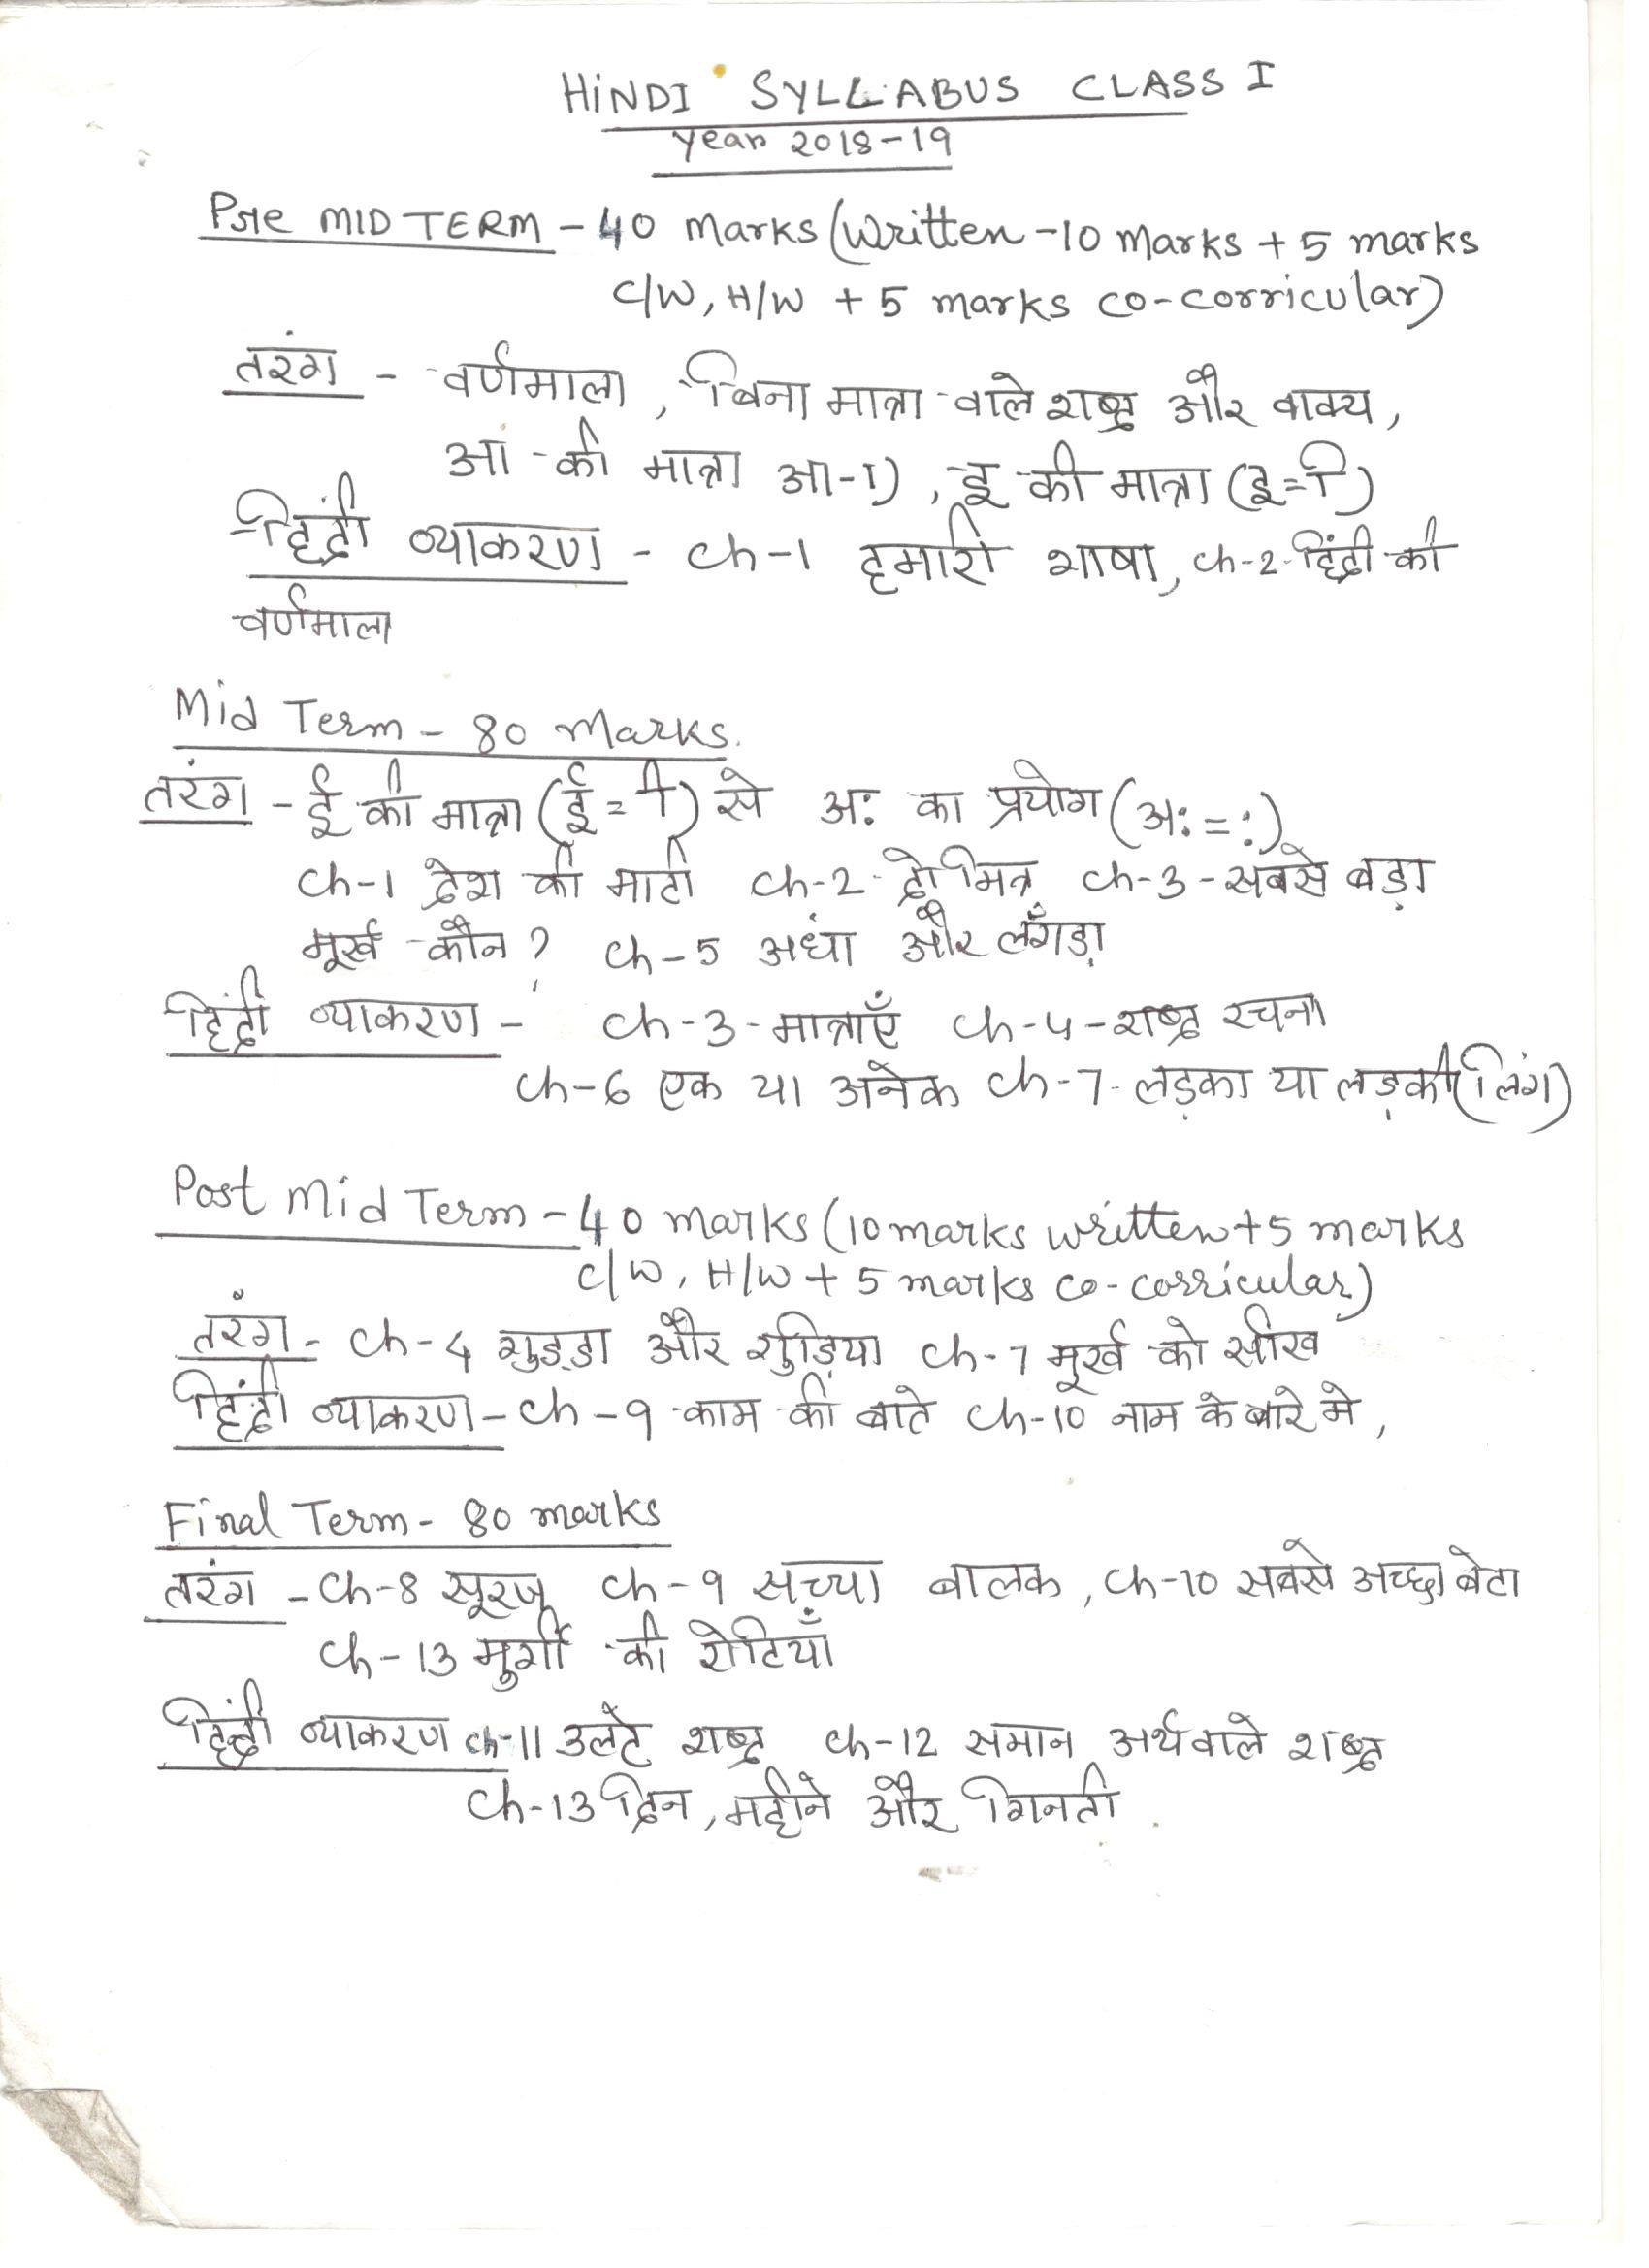 HINDI SYLLABUS CLASS I
Year 2018-19
Pre MID TERM - 40 Marks (Written - 10 Marks + 5 marks
C/W, H/W + 5 marks co-corricular)
तरंग - वर्णमाला, बिना मात्रा वाले शब्द और वाक्य,
आ की मात्रा आ-ा), इ की मात्रा (इ=ि)
हिंदी व्याकरण - Ch-1 हमारी भाषा, Ch-2- हिंदी की
वर्णमाला
Mid Term - 80 Marks.
तरंग - ई की मात्रा (ई = ी) से अः का प्रयोग (अः = ः)
Ch-1 देश की माटी Ch-2- दो मित्र Ch-3-सबसे बड़ा
मूर्ख कौन? Ch-5 अंधा और लँगड़ा
हिंदी व्याकरण - Ch-3-मात्राएँ Ch-4-शब्द रचना
Ch-6 एक या अनेक Ch-7-लड़का या लड़की (लिंग)
Post Mid Term - 40 marks (10 marks written + 5 marks
C/W, H/W + 5 marks co-corricular)
तरंग - Ch-4 गुड्डा और गुड़िया Ch-7 मूर्ख को सीख
हिंदी व्याकरण - Ch-9 काम की बाते Ch-10 नाम के बारे मे,
Final Term - 80 marks
तरंग - Ch-8 सूरज Ch-9 सच्चा बालक, Ch-10 सबसे अच्छा बेटा
Ch-13 मुर्गी की रोटियाँ
हिंदी व्याकरण Ch-11 उलटे शब्द Ch-12 समान अर्थ वाले शब्द
Ch-13 दिन, महीने और गिनती.